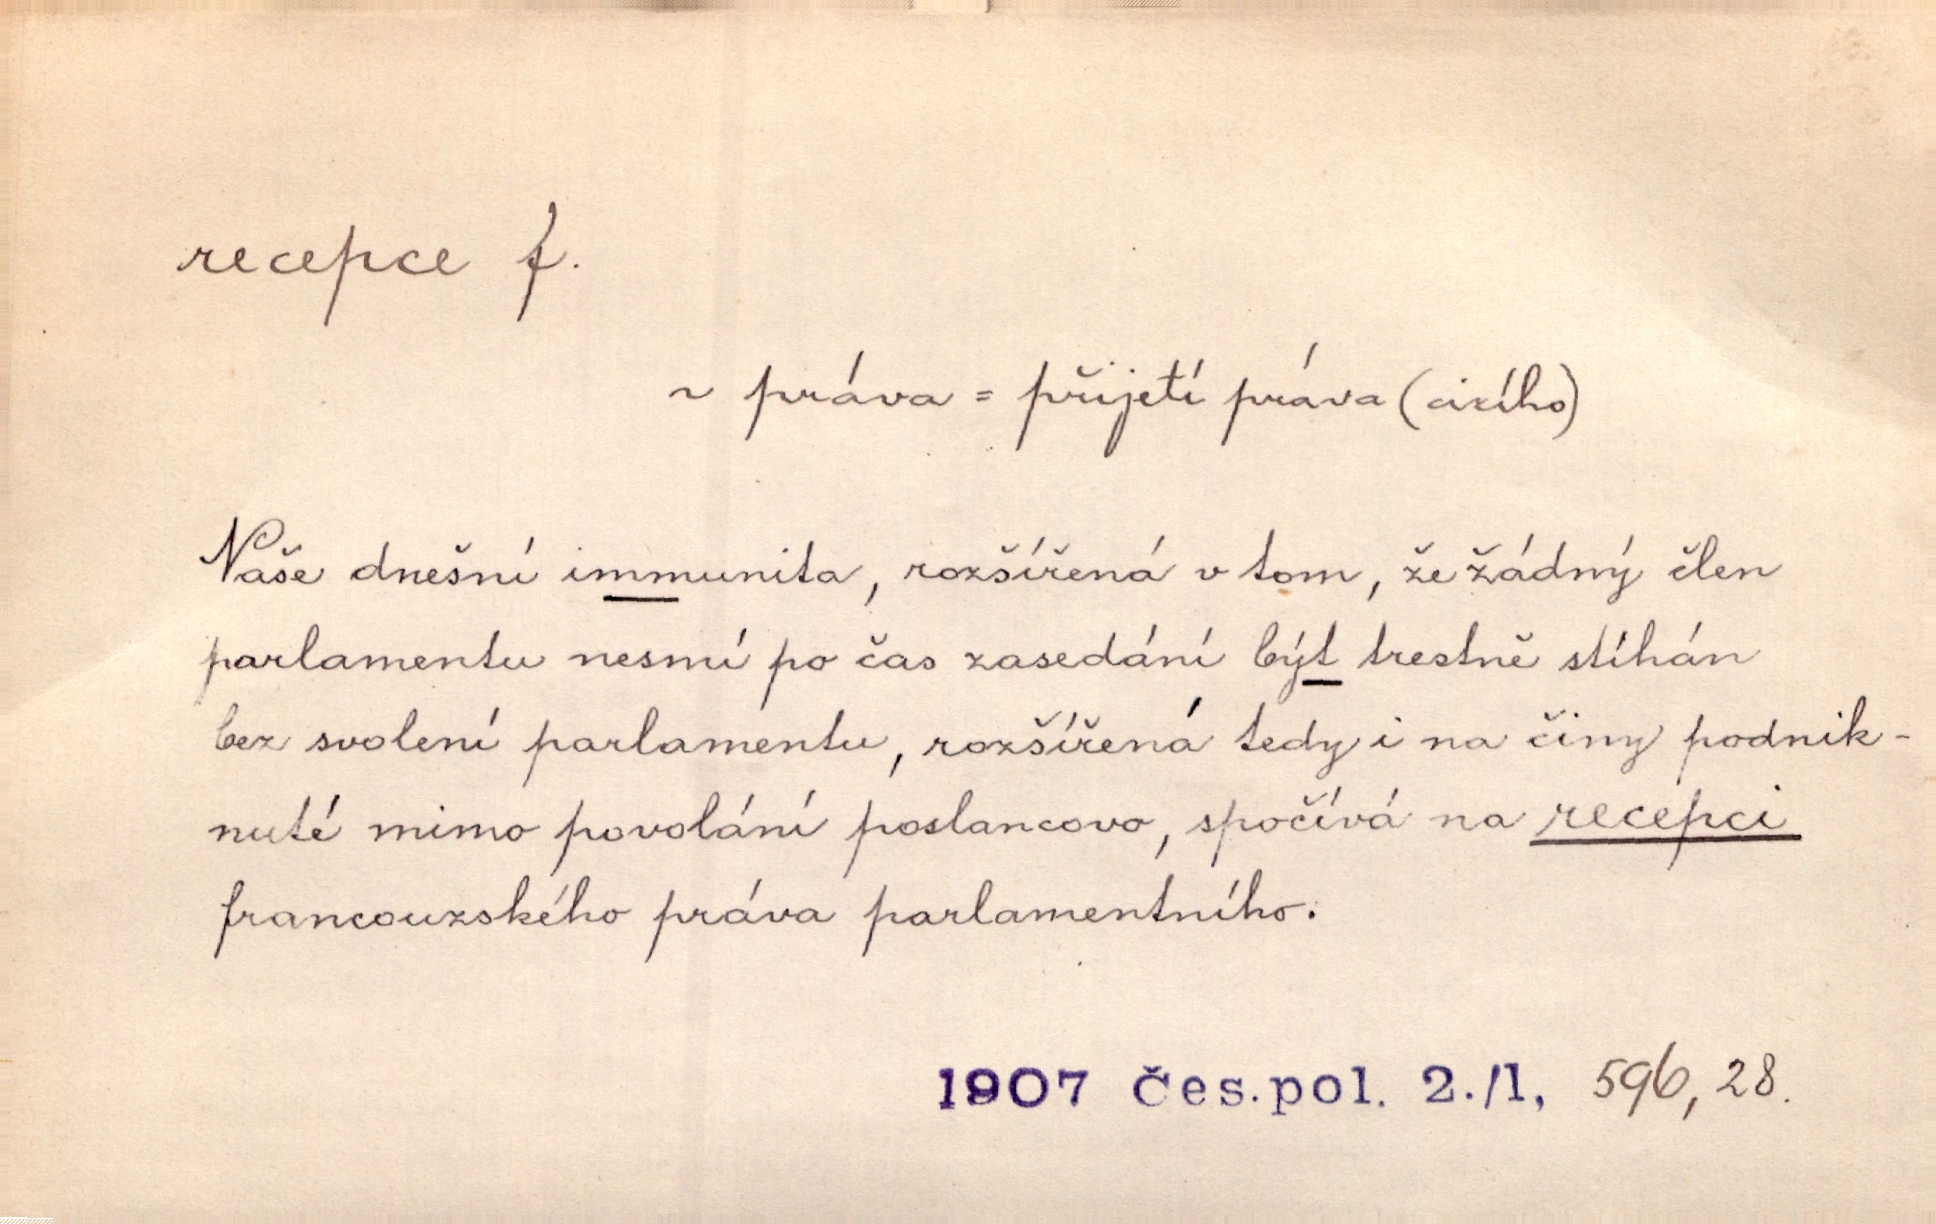 recepce f.
~ práva = přijetí práva (cizího)
Naše dnešní immunita, rozšířená v tom, že žádný člen
parlamentu nesmí po čas zasedání být trestně stíhán
bez svolení parlamentu, rozšířená tedy i na činy podnik-
nuté mimo povolání poslancovo, spočívá na recepci
francouzského práva parlamentního.
1907 Čes.pol. 2./1, 596, 28.